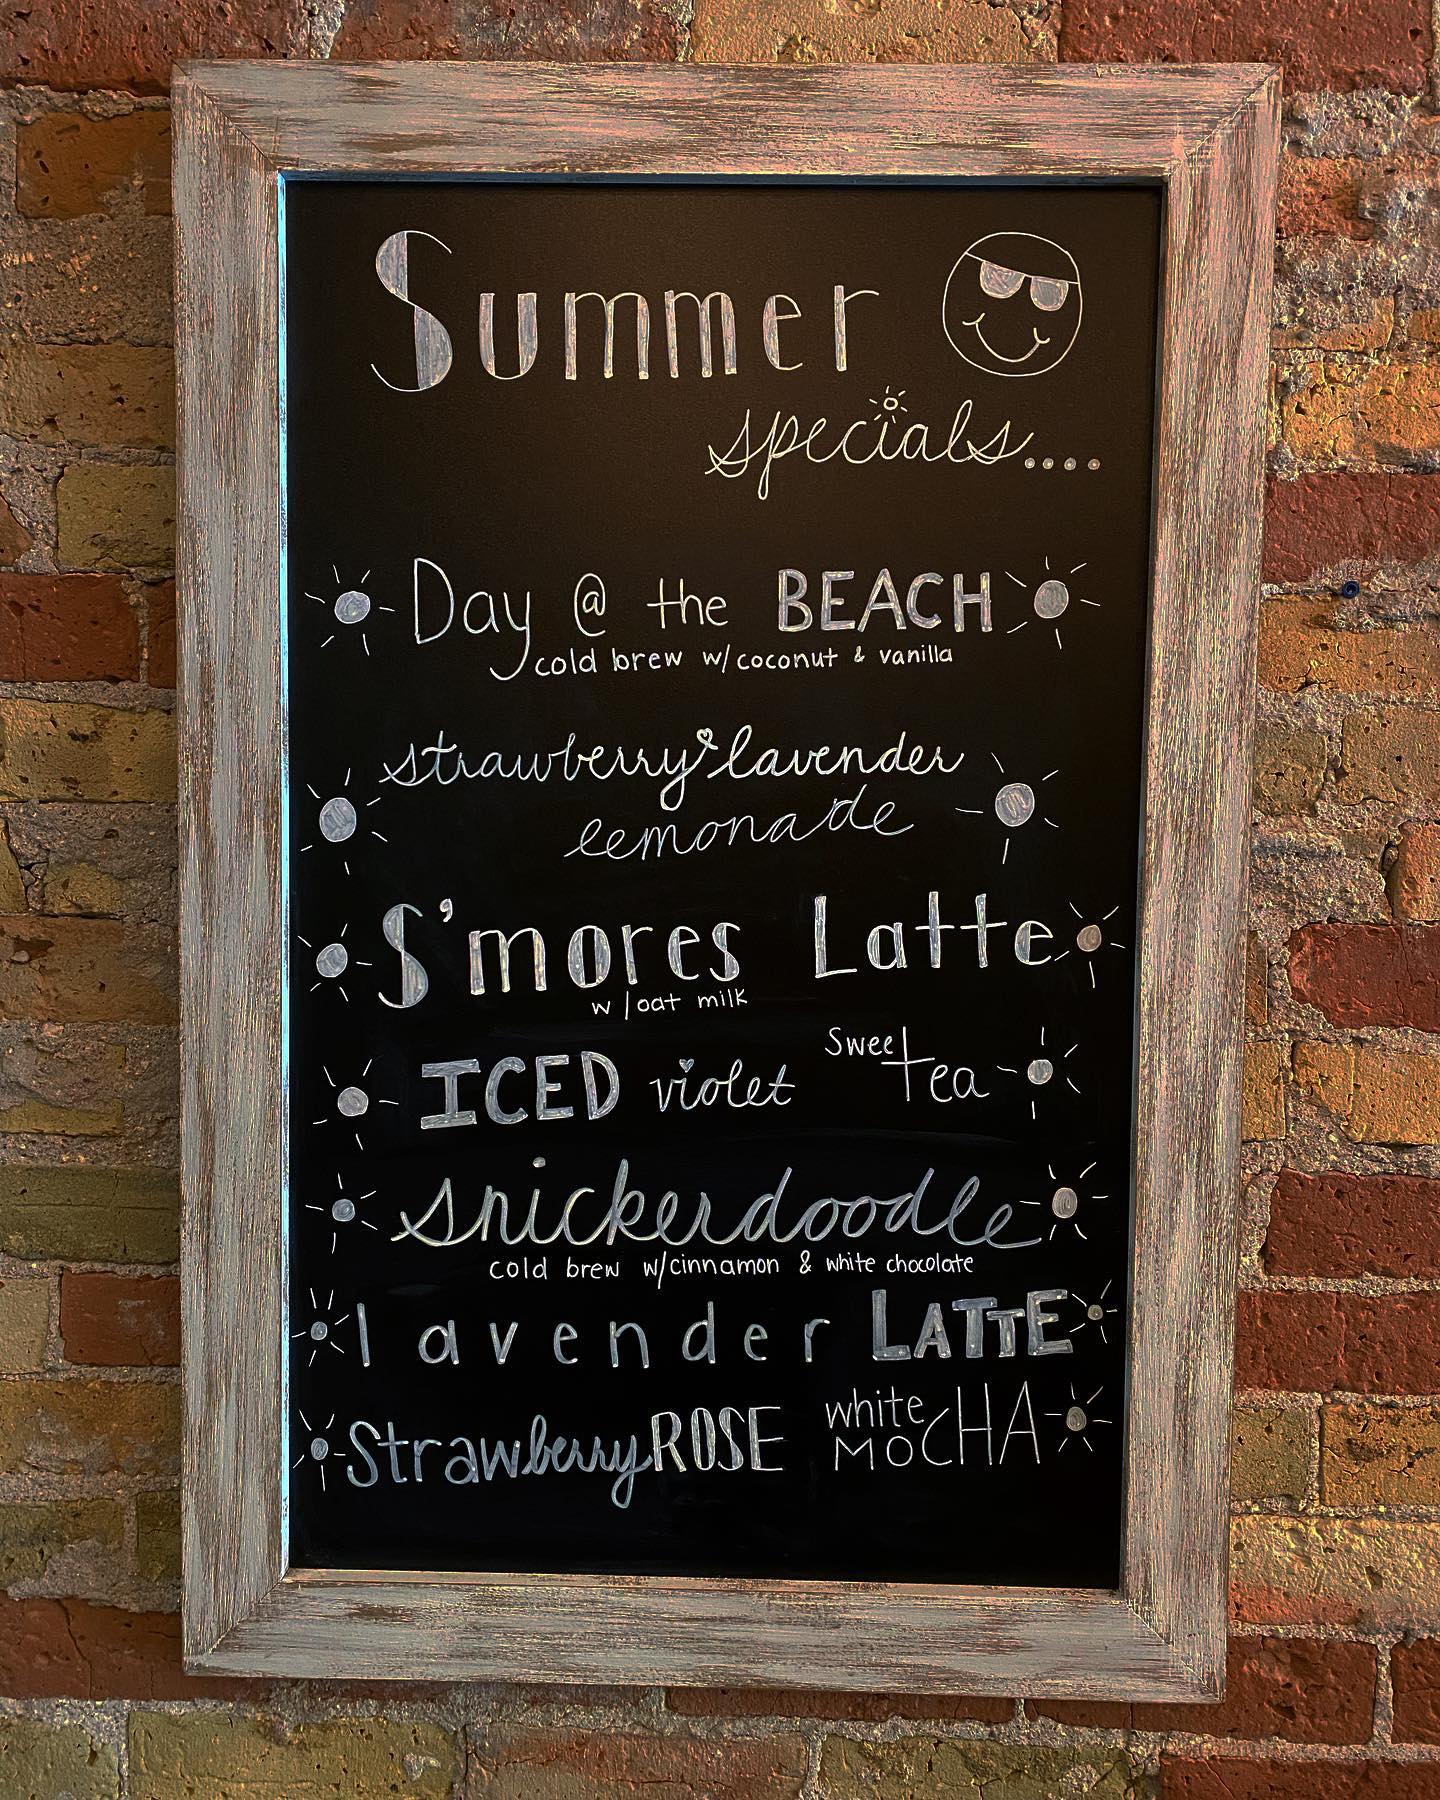 Summer
specials....
Day @ the BEACH
cold brew w/coconut & vanilla
strawberry lavender
lemonade
S'mores Latte
w/oat milk
ICED violet Sweet Tea
snickerdoodle
cold brew w/cinnamon & white chocolate
lavender LATTE
Strawberry ROSE white MOCHA